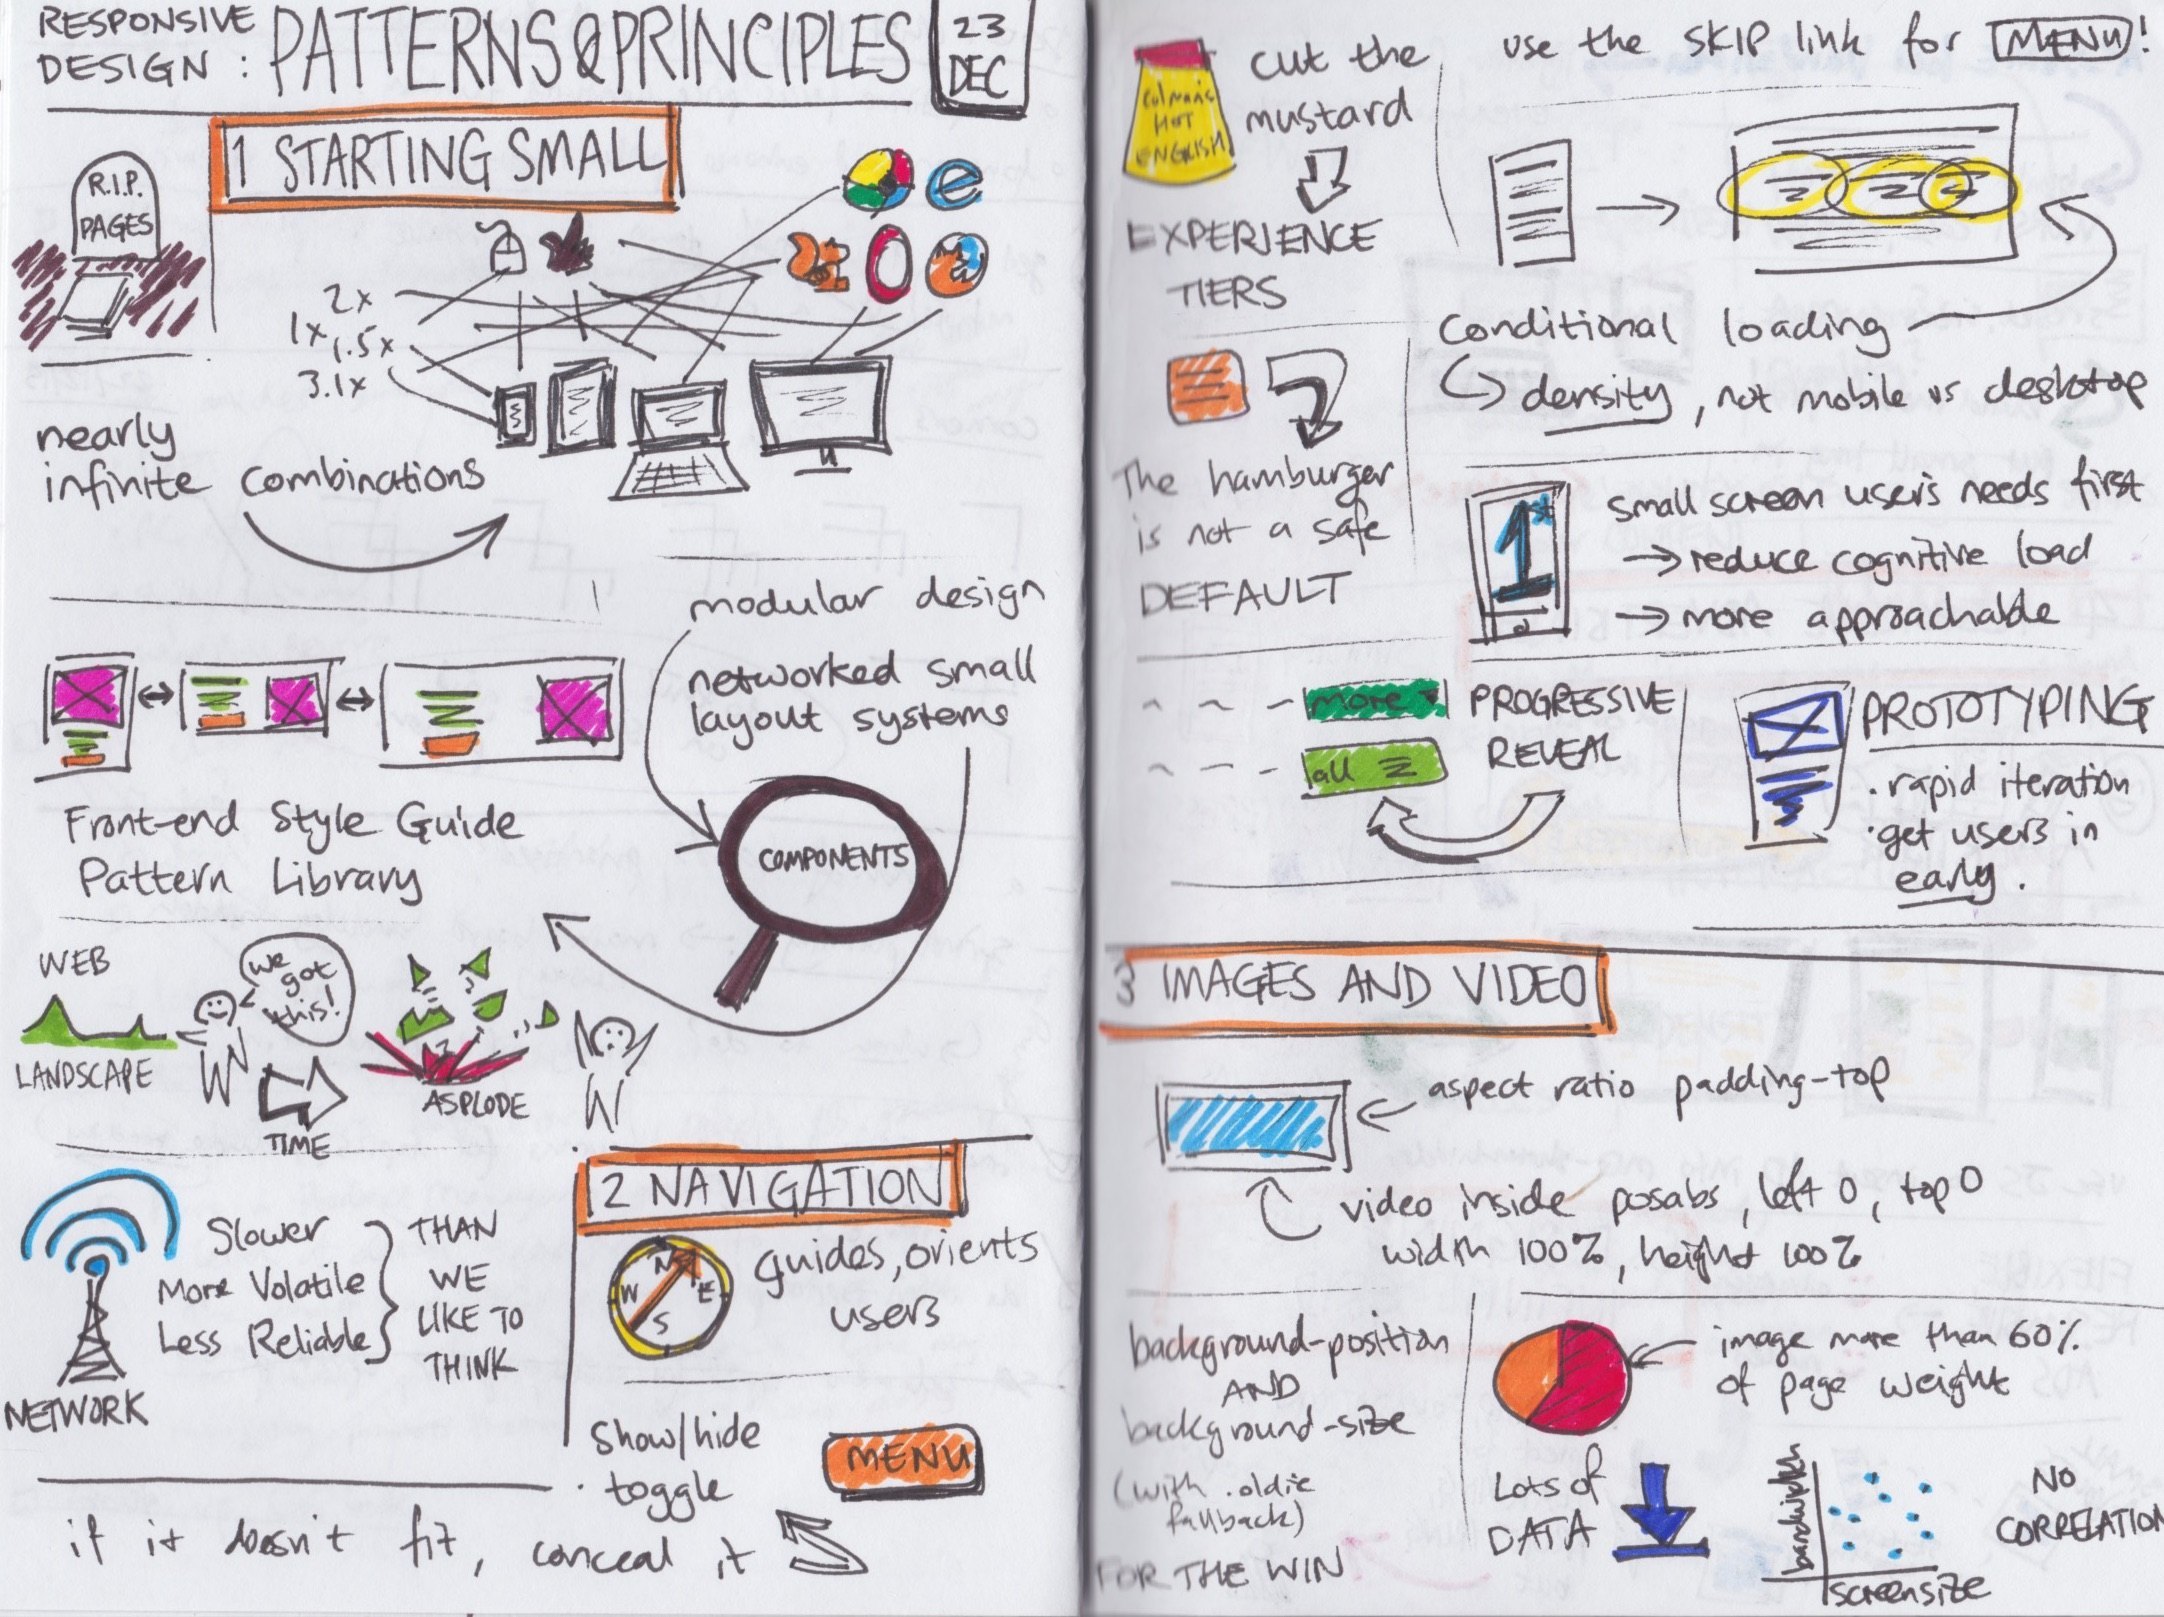 RESPONSIVE
DESIGN : PATTERNS & PRINCIPLES
23
DEC
1 STARTING SMALL
R.I.P.
PAGES
2x
1x 1.5x
3.1x
nearly
infinite combinations
modular design
networked small
layout systems
COMPONENTS
Front-end Style Guide
Pattern Library
WEB
LANDSCAPE
we
got
this!
TIME
ASPLODE
NETWORK
Slower
More Volatile
Less Reliable
THAN
WE
LIKE TO
THINK
if it doesn't fit, conceal it
2 NAVIGATION
N
W E
S
guides, orients
users
Show/hide
toggle
MENU
Colman's
HOT
ENGLISH
cut the
mustard
EXPERIENCE
TIERS
use the SKIP link for MENU!
conditional loading
density, not mobile vs desktop
The hamburger
is not a safe
DEFAULT
1st
small screen users needs first
→ reduce cognitive load
→ more approachable
more
all
PROGRESSIVE
REVEAL
PROTOTYPING
· rapid iteration
· get users in
early.
3 IMAGES AND VIDEO
aspect ratio padding-top
video inside posabs, left 0, top 0
width 100%, height 100%
background-position
AND
background-size
(with .oldie
fallback)
FOR THE WIN
image more than 60%
of page weight
LOTS OF
DATA
bandwidth
screensize
NO
CORRELATION